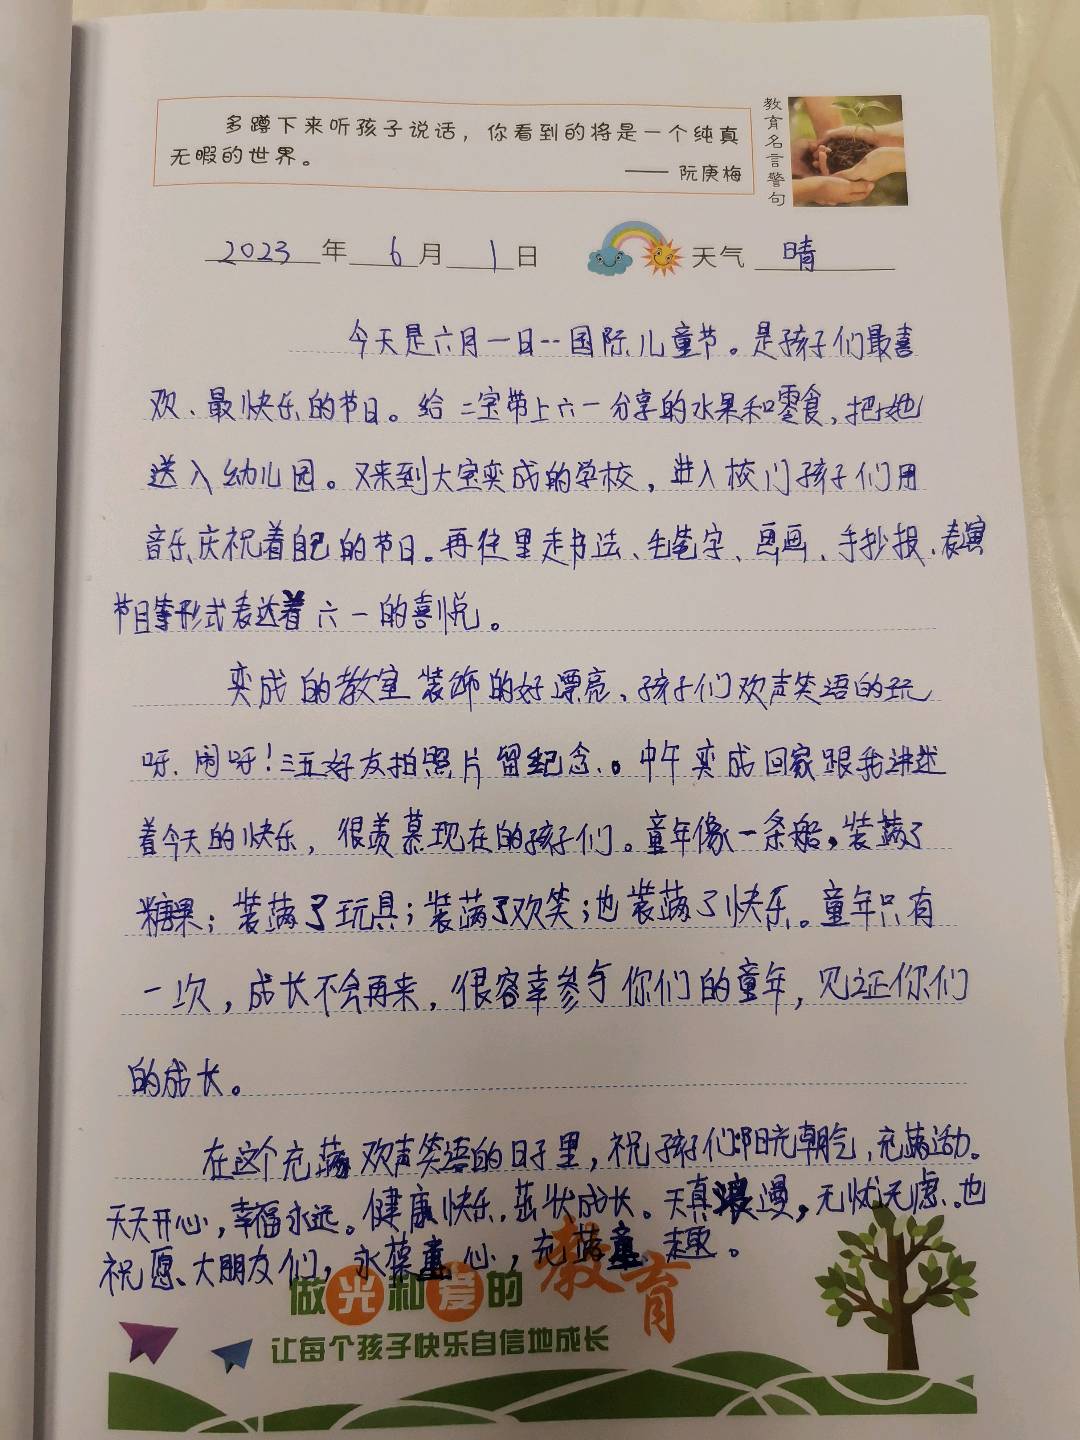 多蹲下来听孩子说话，你看到的将是一个纯真
无暇的世界。
—— 阮庚梅
教育名言警句
2023年 6月 1日 天气 晴
今天是六月一日--国际儿童节。是孩子们最喜
欢、最快乐的节日。给二宝带上六一分享的水果和零食，把她
送入幼儿园。又来到大宝奕成的学校，进入校门孩子们用
音乐庆祝着自己的节日。再往里走书法、毛笔字、画画、手抄报、表演
节目等形式表达着六一的喜悦。
奕成的教室装饰的好漂亮、孩子们欢声笑语的玩
呀、闹呀！三五好友拍照片留纪念、。中午奕成回家跟我讲述
着今天的快乐，很羡慕现在的孩子们。童年像一条船，装满了
糖果；装满了玩具；装满了欢笑；也装满了快乐。童年只有
一次，成长不会再来，很容幸参与你们的童年，见证你们
的成长。
在这个充满欢声笑语的日子里，祝孩子们阳光朝气，充满活力。
天天开心，幸福永远。健康快乐，茁壮成长。天真浪漫，无忧无虑、也
祝愿、大朋友们，永葆童心，充满童趣。
做光和爱的教育
让每个孩子快乐自信地成长